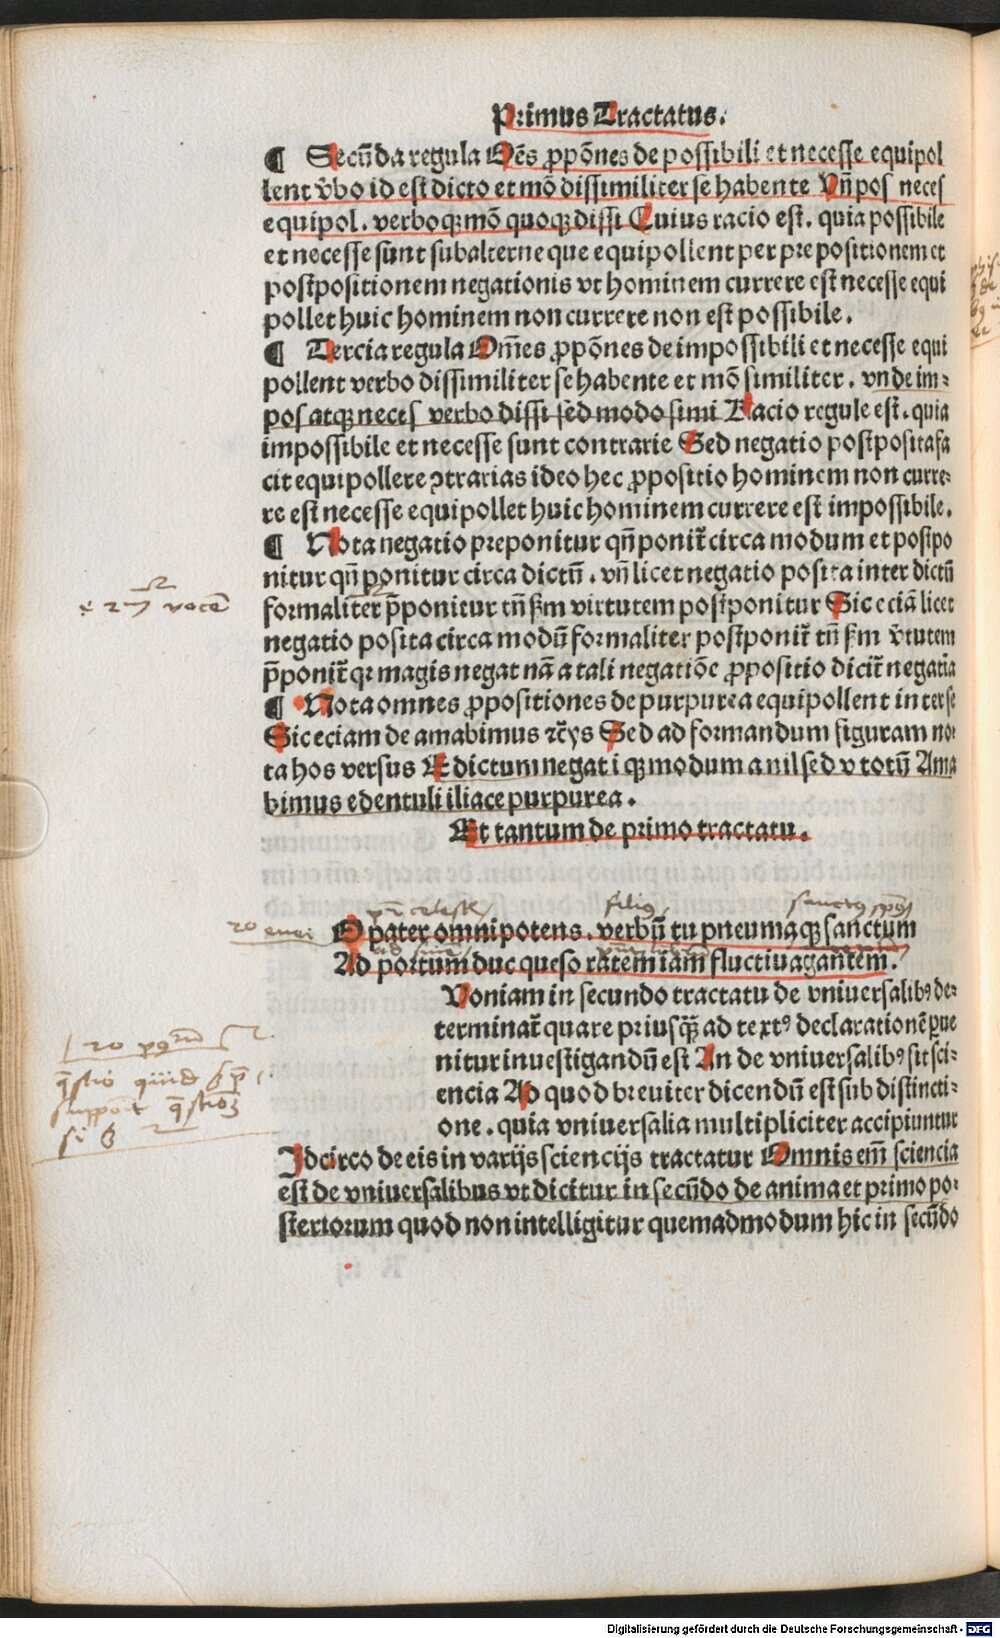 Primus Tractatus.
¶ Secūda regula Oēs ꝓpōnes de possibili et necesse equipol
lent v̄bo id est dicto et mō dissimiliter se habente Vn̄ pos neces
equipol. verboqꝫ mō quoqꝫ dissi Cuius racio est. quia possibile
et necesse sunt subalterne que equipollent per prepositionem et
postpositionem negationis vt hominem currere est necesse equi
pollet huic hominem non currere non est possibile.
¶ Tercia regula Om̄es ꝓpōnes de impossibili et necesse equi
pollent verbo dissimiliter se habente et mō similiter. vnde im⸗
pos atqꝫ neces verbo dissi sed modo simi Racio regule est. quia
impossibile et necesse sunt contrarie Sed negatio postposita fa
cit equipollere ↄtrarias ideo hec ꝓpositio hominem non curre⸗
re est necesse equipollet huic hominem currere est impossibile.
¶ Nota negatio preponitur qn̄ ponit̄ circa modum et postpo
nitur qn̄ ponitur circa dictū. vn̄ licet negatio posita inter dictū
formaliter p̄ponitur tn̄ ẜm virtutem postponitur Sic eciā licet
negatio posita circa modū formaliter postponit̄ tn̄ ẜm v̄tutem
p̄ponit̄ qꝛ magis negat nā a tali negatiōe ꝓpositio dicit̄ negatīa
¶ Nota omnes ꝓpositiones de purpurea equipollent inter se
Sic eciam de amabimus ꝛc̄ys Sed ad formandum figuram no⸗
ta hos versus E dictum negat i qꝫ modum a nil sed v totū Ama
bimus edentuli iliace purpurea.
Et tantum de primo tractatu.
celestis filius sanctus
O pater omnipotens. verbū tu pneumaqꝫ sanctum
Ad portum duc queso ratem iam fluctiuagantem.
Voniam in secundo tractatu de vniuersalibꝰ de⸗
terminat̄ quare priusqꝫ̄ ad textꝰ declarationē pue
nitur inuestigandū est An de vniuersalibꝰ sit sci⸗
encia Ad quod breuiter dicendū est sub distincti⸗
one. quia vniuersalia multipliciter accipiuntur
Idcirco de eis in varijs sciencijs tractatur Omnis em̄ sciencia
est de vniuersalibus vt dicitur in secūdo de anima et primo po⸗
steriorum quod non intelligitur quemadmodum hic in secūdo
Digitalisierung gefördert durch die Deutsche Forschungsgemeinschaft - DFG